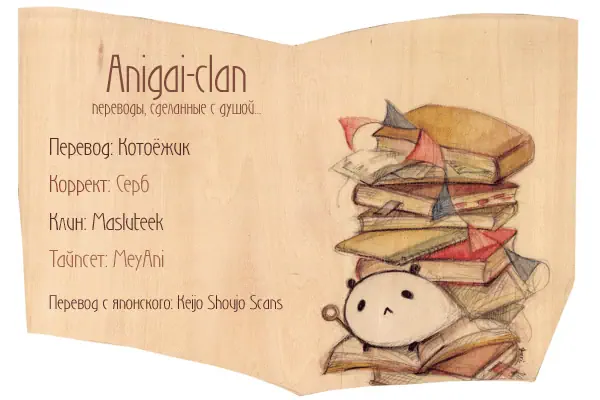 Anigai-clan
переводы, сделанные с душой...
Перевод: Котоёжик
Коррект: Серб
Клин: Masluteek
Тайпсет: MeyAni
Перевод с японского: Keijo Shoujo Scans